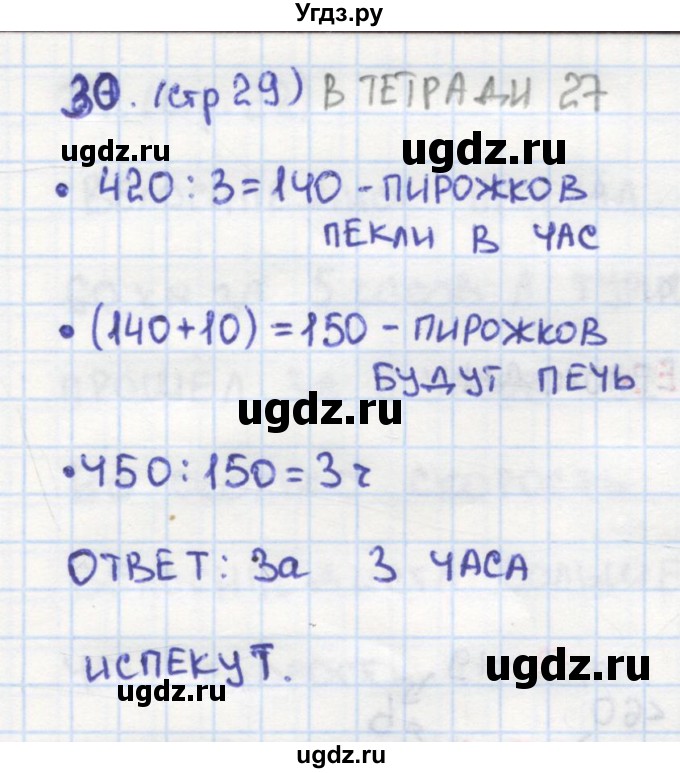 Угдз.ру
30. (стр 29) В ТЕТРАДИ 27
ugdz.ru ugdz.ru
• 420 : 3 = 140 - ПИРОЖКОВ
ПЕКЛИ В ЧАС
• (140+10) = 150 - ПИРОЖКОВ
БУДУТ ПЕЧЬ
ugdz.ru ugdz.ru
• 450 : 150 = 3 ч
ОТВЕТ: За 3 ЧАСА
ИСПЕКУТ.
ugdz.ru ugdz.ru
ugdz.ru